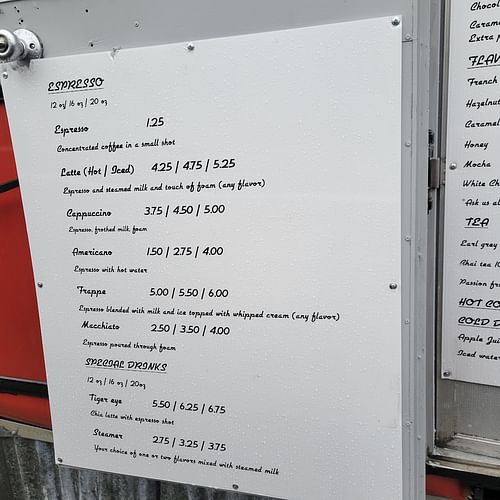 ESPRESSO
12 oz/ 16 oz / 20 oz
Espresso 1.25
Concentrated coffee in a small shot
Latte (Hot / Iced) 4.25 / 4.75 / 5.25
Espresso and steamed milk and touch of foam (any flavor)
Cappuccino 3.75 / 4.50 / 5.00
Espresso, frothed milk, foam
Americano 1.50 / 2.75 / 4.00
Espresso with hot water
Frappe 5.00 / 5.50 / 6.00
Espresso blended with milk and ice topped with whipped cream (any flavor)
Macchiato 2.50 / 3.50 / 4.00
Espresso poured through foam
SPECIAL DRINKS
12 oz / 16 oz / 20oz
Tiger eye 5.50 / 6.25 / 6.75
Chia latte with espresso shot
Steamer 2.75 / 3.25 / 3.75
Your choice of one or two flavors mixed with steamed milk
Chocol
Caram
Extra
FLAV
French
Hazelnut
Caramel
Honey
Mocha
White Ch
*Ask us al
TEA
Earl grey
Chai tea
Passion fr
HOT CO
COLD D
Apple Jui
Iced water